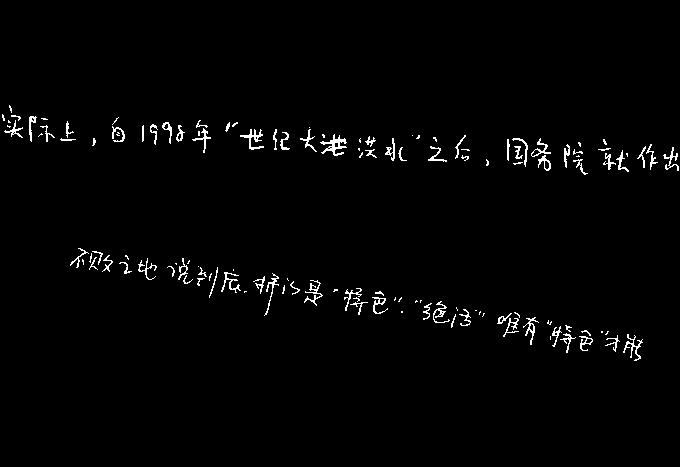 实际上，自1998年“世纪大洪水”之后，国务院就作出
不败之地说到底，拼的是“特色”、“绝活”唯有“特色”才能